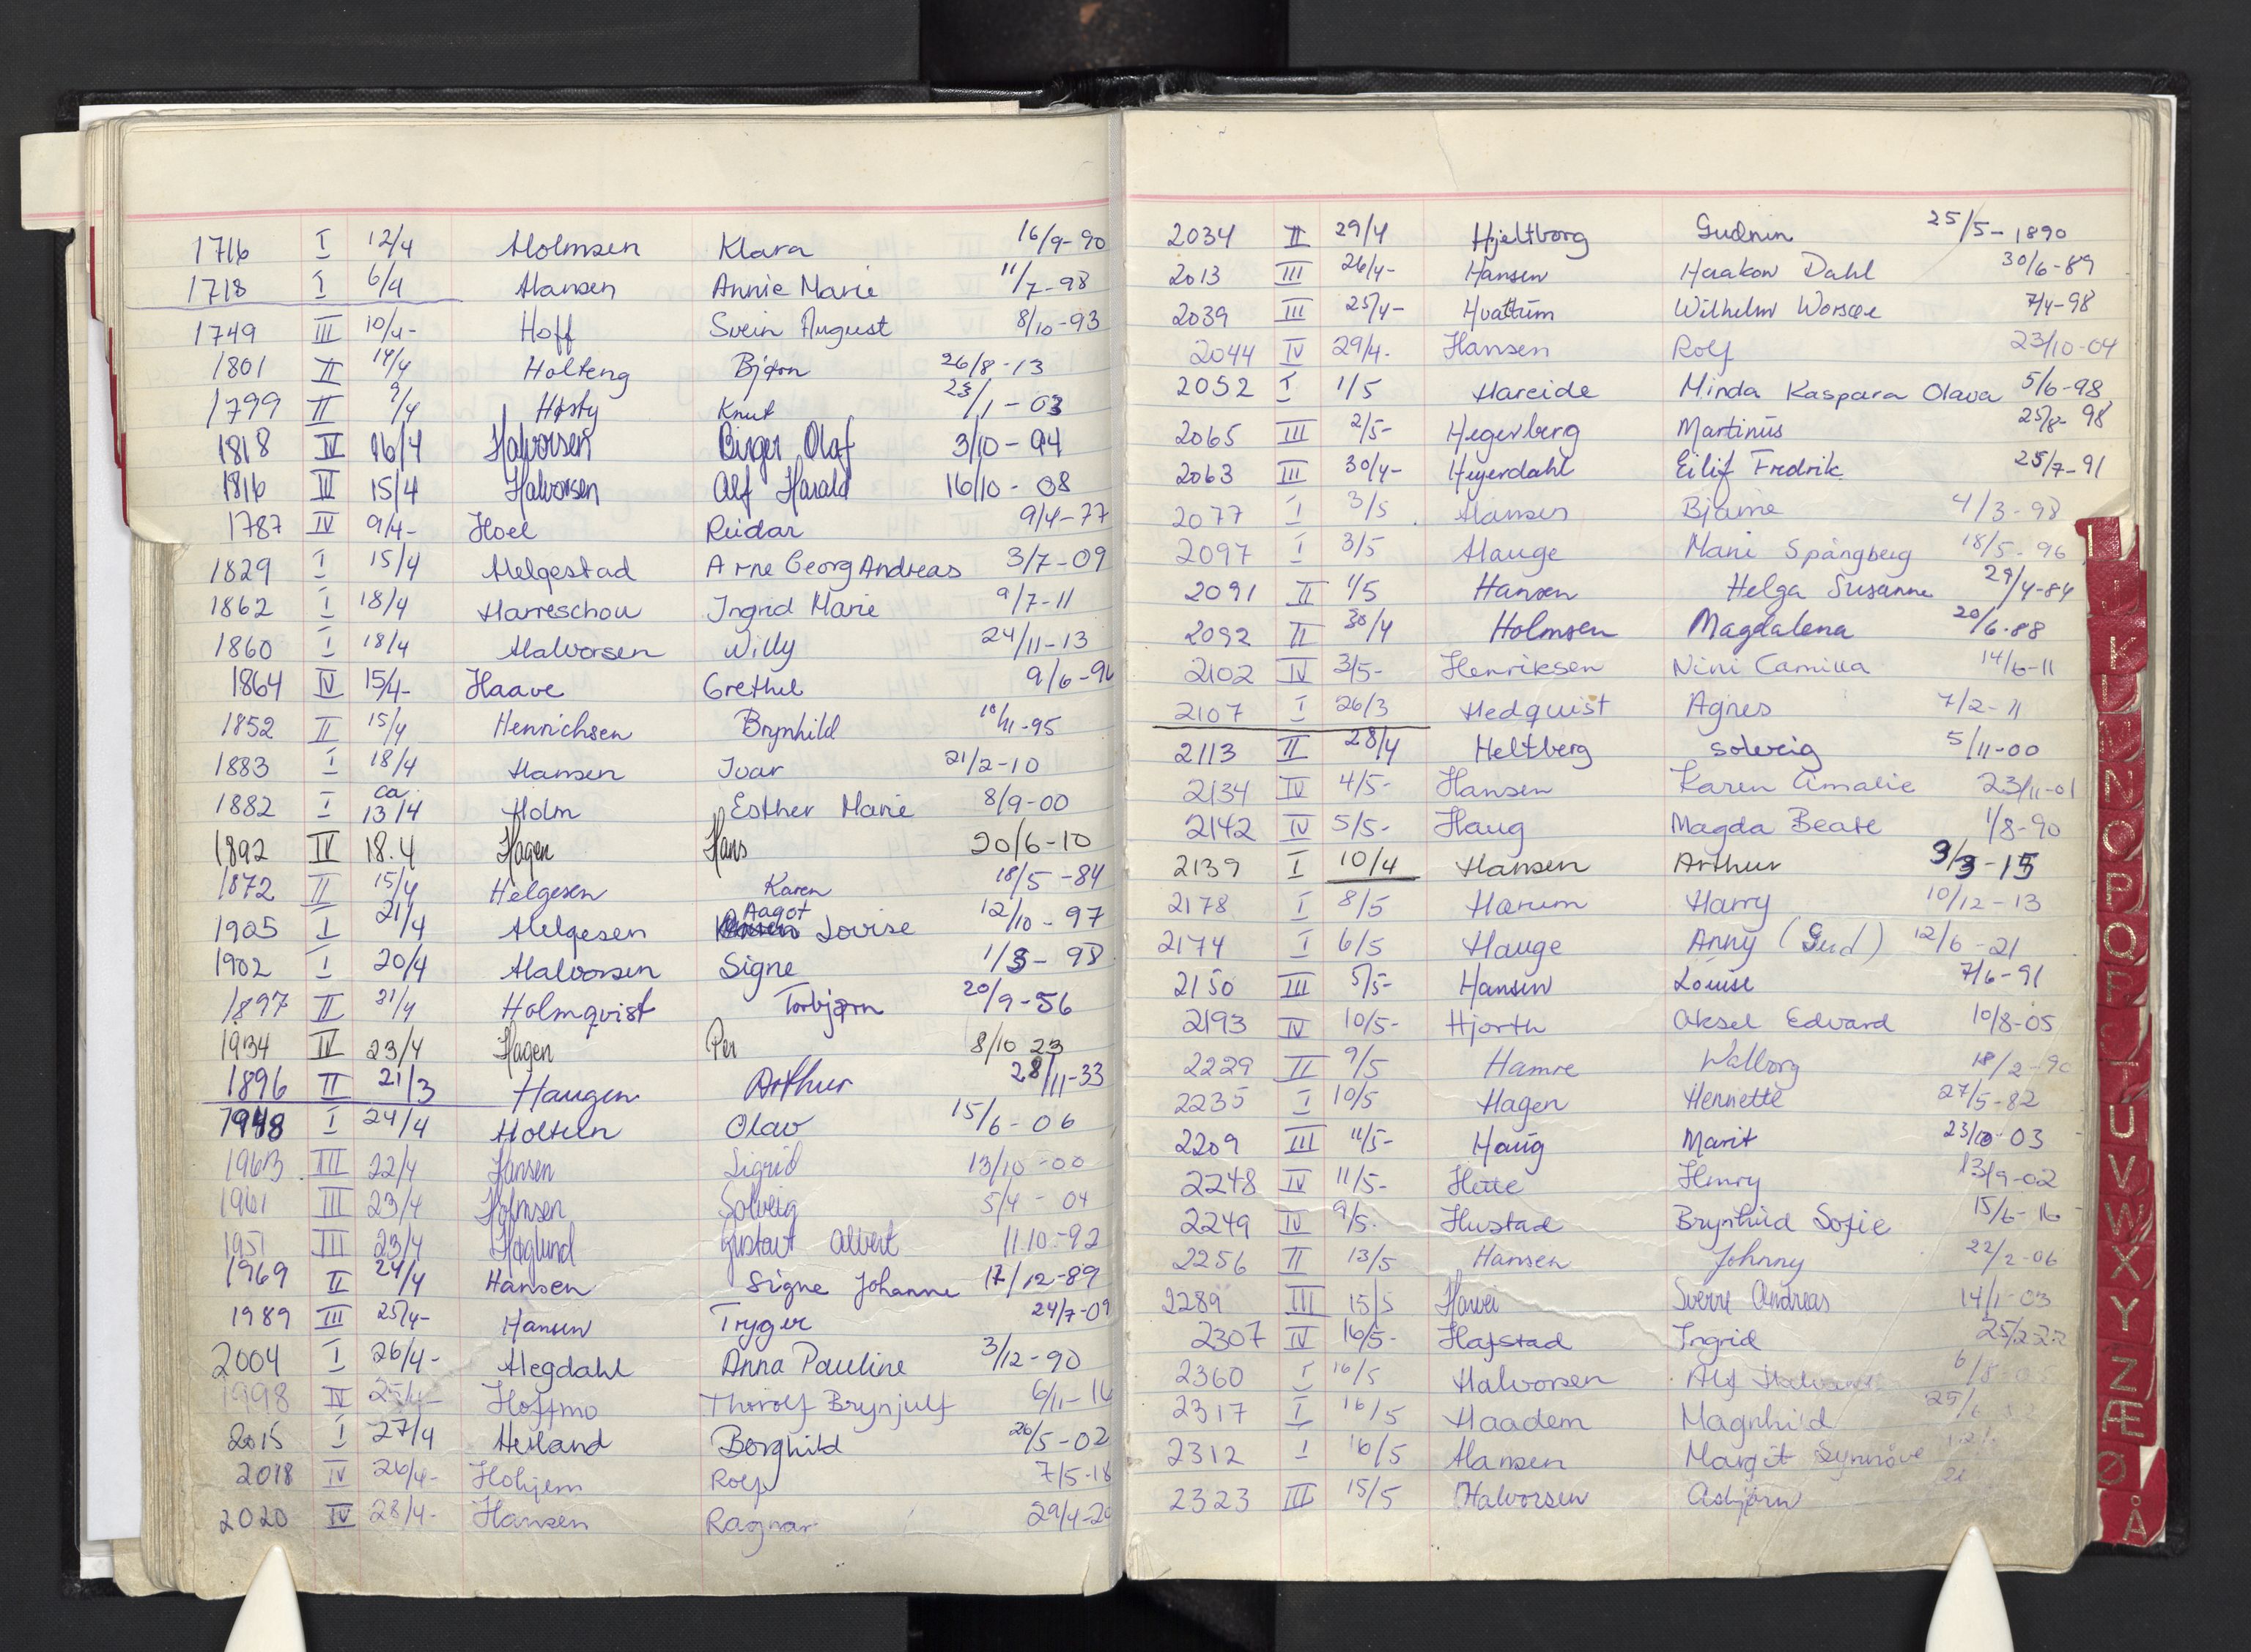 1716 I 12/4 Holmsen Klara 16/9-90
1718 I 6/4 Hansen Annie Marie 11/7-98
1749 III 10/4- Hoff Svein August 8/10-93
1801 II 14/4 Holteng Bjørn 26/8-13
1799 II 9/4 Høsty Knut 23/1-03
1818 IV 16/4 Halvorsen Birger Olaf 3/10-94
1816 IV 15/4 Halvorsen Alf Harald 16/10-08
1787 IV 9/4- Hoel Reidar 9/4-77
1829 I 15/4 Helgestad Arne Georg Andreas 3/7-09
1862 I 18/4 Harreschou Ingrid Marie 9/7-11
1860 I 18/4 Halvorsen Willy 24/11-13
1864 IV 15/4- Haave Grethel 9/6-
1852 II 15/4 Henrichsen Brynhild 10/11-95
1883 I 18/4 Hansen Ivar 21/2-10
1882 I ca 13/4 Holm Esther Marie 8/9-00
1892 IV 18.4 Hagen Hans 20/6-10
1872 II 15/4 Helgesen Karen 18/5-84
1905 I 21/4 Helgesen Aagot Lovise 12/10-97
1902 I 20/4 Halvorsen Signe 1/3-98
1897 II 21/4 Holmqvist Torbjørn 20/9-56
1934 IV 23/4 Hagen Per 8/10 23
1896 II 21/3 Haugen Arthur 28/11-33
1948 I 24/4 Holteln Olav 15/6-06
1963 III 22/4 Hansen Sigrid 13/10-00
1961 III 23/4 Holmsen Solveig 5/4-04
1951 III 23/4 Høglund Gustav Albert 11.10-92
1969 II 24/4 Hansen Signe Johanne 17/12-89
1989 III 25/4- Hansen Trygve 24/7-09
2004 I 26/4- Hegdahl Anna Pauline 3/12-90
1998 IV 25/4- Hoffmo Thorolf Brynjulf 6/11-16
2015 I 27/4 Heiland Borghild 26/5-02
2018 IV 26/4- Hohjem Rolf 7/5-18
2020 IV 28/4- Hansen Ragnar 29/4-20
2034 II 29/4 Hjeltborg Gudrun 25/5-1890
2013 III 26/4- Hansen Haakon Dahl 30/6-89
2039 III 25/4- Hvattum Wilhelm Worsøe 7/4-98
2044 IV 29/4- Hansen Rolf 23/10-04
2052 I 1/5 Hareide Minda Kaspara Olava 5/6-98
2065 III 2/5- Hegerberg Martinus 25/8-98
2063 III 30/4- Heyerdahl Eilif Fredrik 25/7-91
2077 I 3/5 Hansen Bjarne 4/3-98
2097 I 3/5 Hauge Mani Spångberg 18/5-96
2091 II 1/5 Hansen Helga Susanne 29/4-84
2092 II 30/4 Holmsen Magdalena 20/6-88
2102 IV 3/5- Henriksen Nini Camilla 14/6-11
2107 I 26/3 Hedquist Agnes 7/2-11
2113 II 28/4 Heltberg Solveig 5/11-00
2134 IV 4/5- Hansen Karen Amalie 23/11-01
2142 IV 5/5- Haug Magda Beate 1/8-90
2139 I 10/4 Hansen Arthur 3/3-15
2178 I 8/5 Hærum Harry 10/12-13
2174 I 6/5 Hauge Anny (Gud) 12/6-21
2150 III 5/5- Hansen Louise 7/6-91
2193 IV 10/5- Hjorth Aksel Edvard 10/8-05
2229 II 9/5 Hamre Walborg 18/2-90
2235 I 10/5 Hagen Henriette 27/5-82
2209 III 11/5- Haug Marit 23/10-03
2248 IV 11/5- Hitte Henry 13/9-02
2249 IV 9/5- Hustad Brynhild Sofie 15/6-16
2256 II 13/5 Hansen Johnny 22/2-06
2289 III 15/5 Hawei Sverre Andreas 14/1-03
2307 IV 16/5- Hafstad Ingrid 25/2-22
2360 I 16/5 Halvorsen Alf 6/8
2317 I 16/5 Haadem Magnhild 25/6
2312 I 16/5 Hansen Margit Synnøve
2323 III 15/5 Halvorsen Asbjørn
I
J
K
L
M
N
O
P
Q
R
S
T
U
V
W
X
Y
Z
Æ
Ø
Å